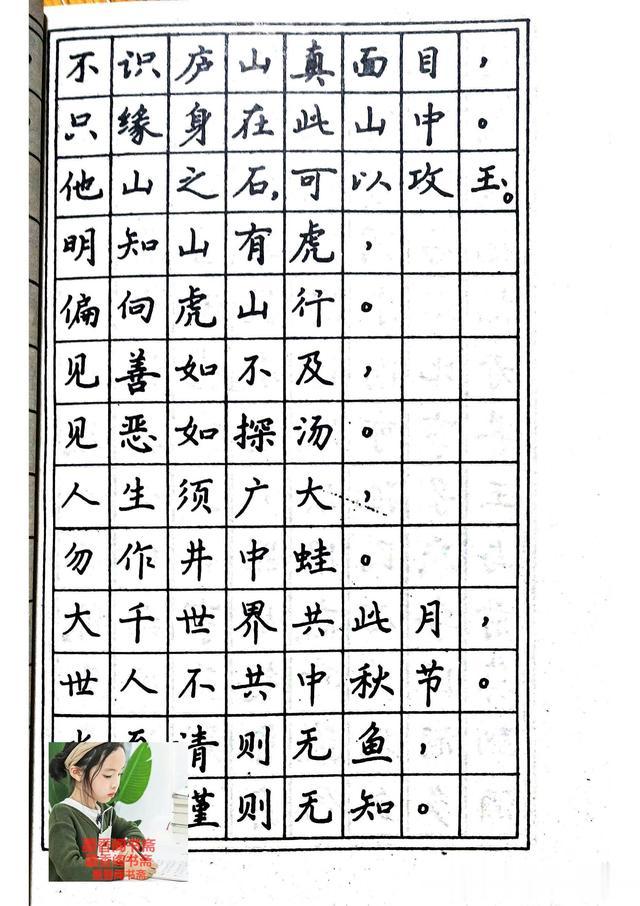 不识庐山真面目，
只缘身在此山中。
他山之石，可以攻玉。
明知山有虎，
偏向虎山行。
见善如不及，
见恶如探汤。
人生须广大，
勿作井中蛙。
大千世界共此月，
世人不共中秋节。
清则无鱼，
则无知。
香阁书斋
香阁书斋
香阁书斋